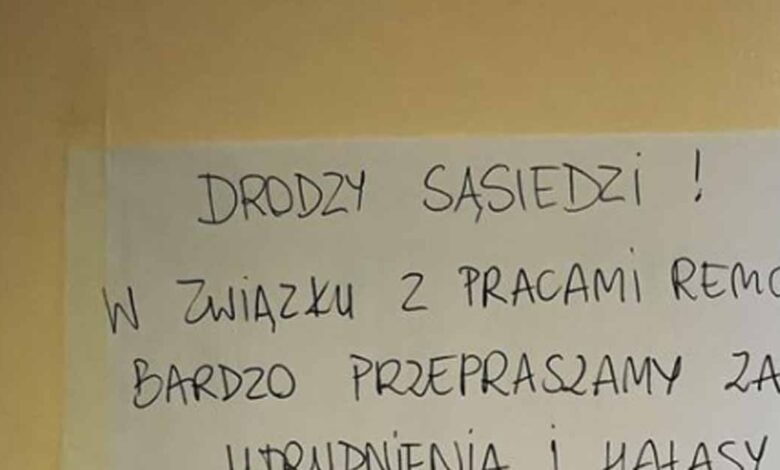 DRODZY SĄSIEDZI !
W ZWIĄZKU Z PRACAMI REMO
BARDZO PRZEPRASZAMY ZA
UTRUDNIENIA I HAŁASY